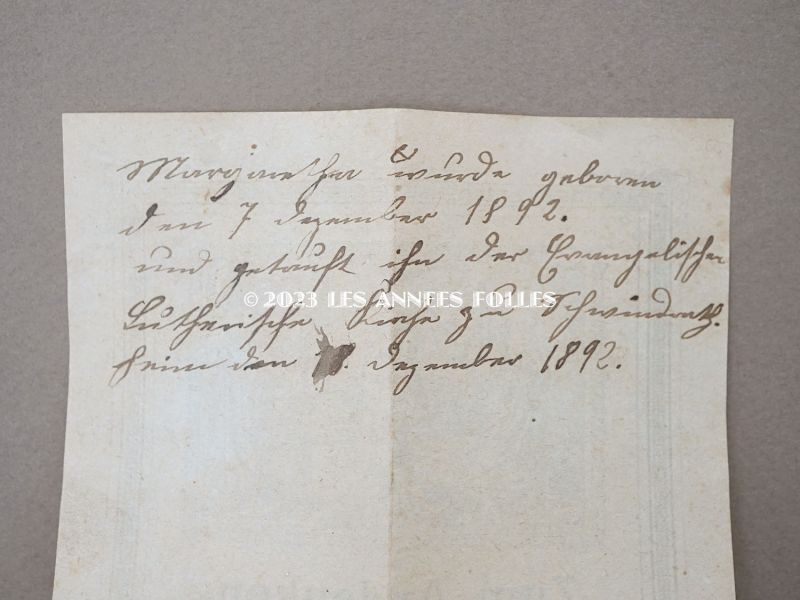 Margaretha wurde geboren
den 7 dezember 1892.
und getauft ihn der Evangelischen
© 2023 LES ANNÉES FOLLES
Lutherische Kirche zu Schwindratz.
heim den 18. dezember 1892.